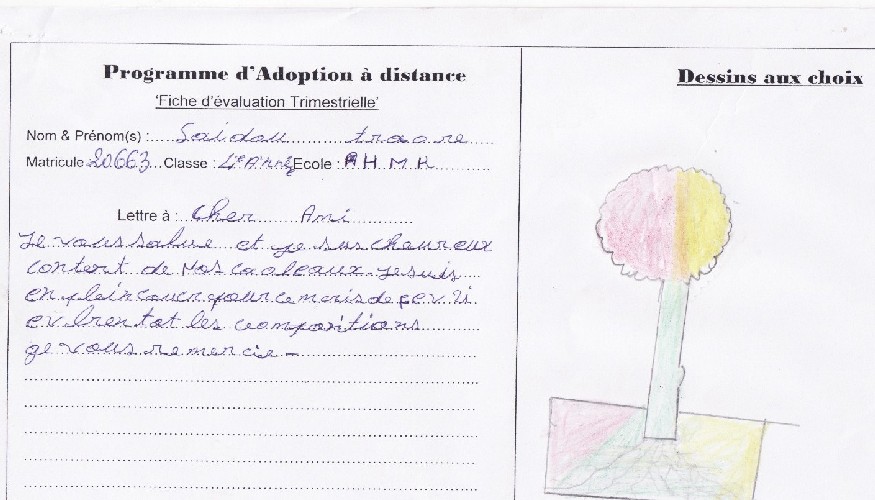 Programme d'Adoption à distance
'Fiche d'évaluation Trimestrielle'
Nom & Prénom(s) : Saidou traore
Matricule 20663 Classe : 4e Année Ecole : A H M K
Lettre à : Cher Ami
Je vous salue et je suis heureux
content de vos cadeaux. Je suis
en plein cour pour ce mois de
et bientot les compositions
je vous remercie -
Dessins aux choix